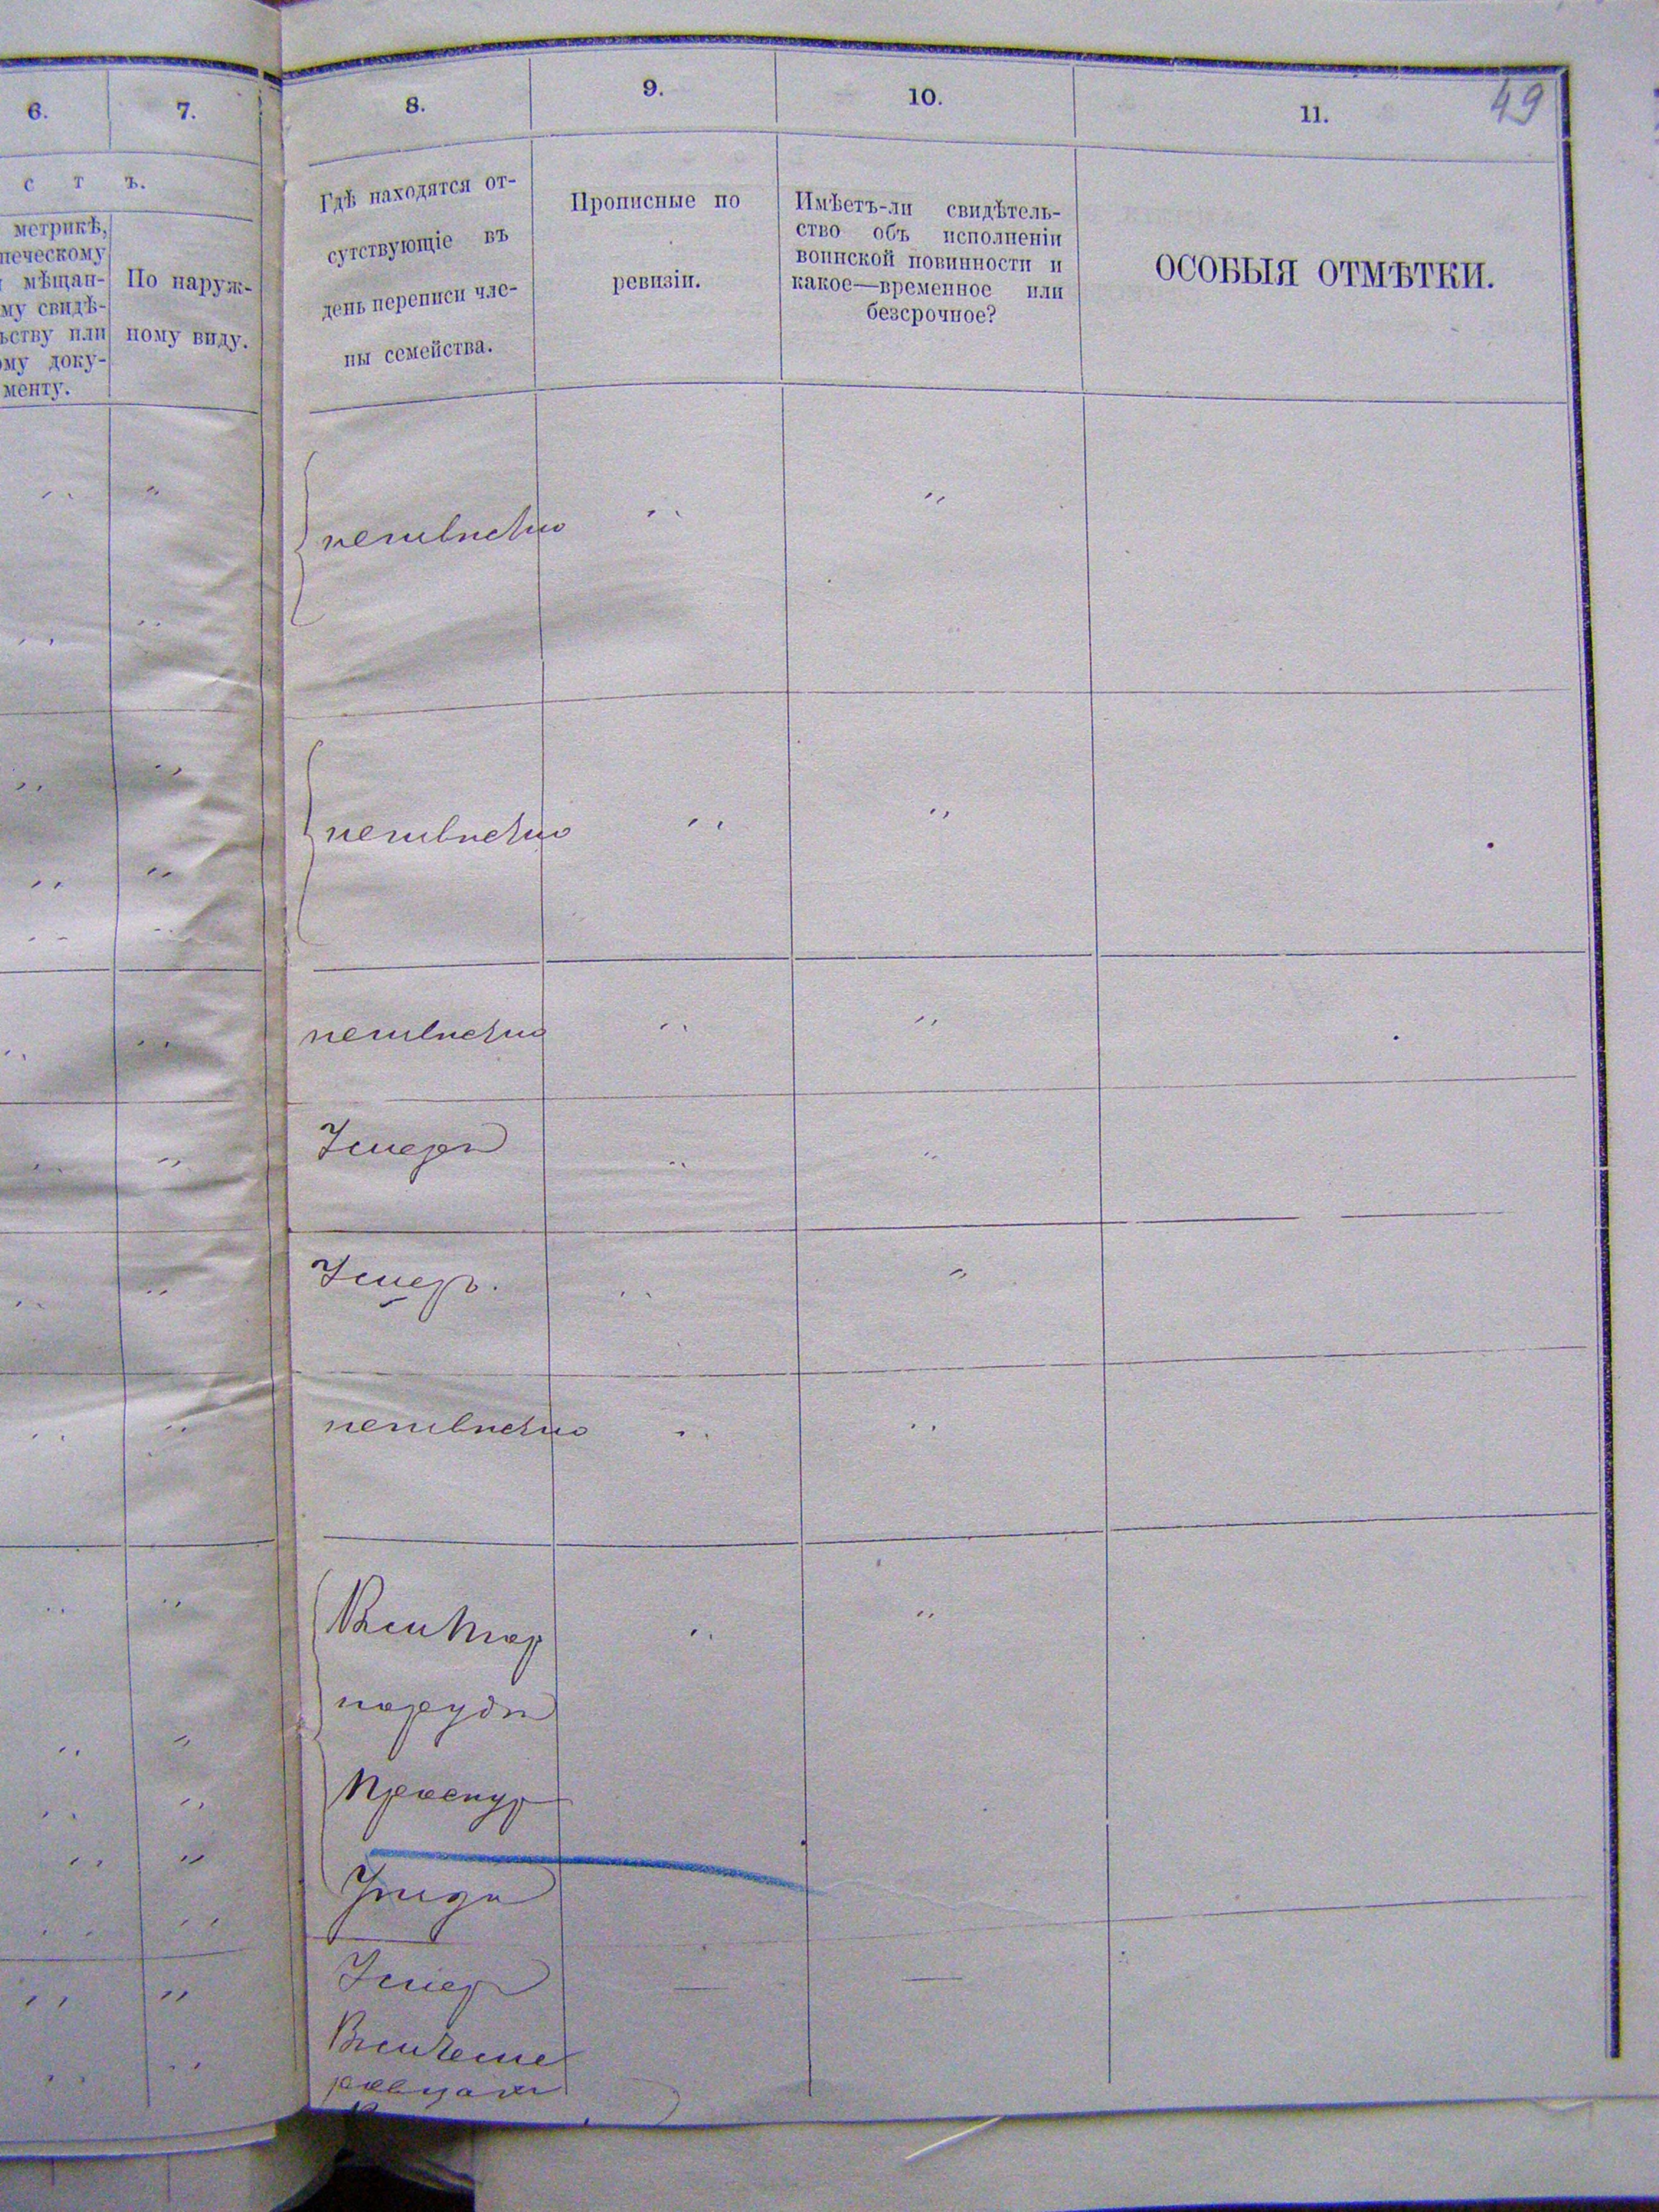 49
6.
7.
8.
9.
10.
11.
с т ъ.
метрикѣ,
мѣщан-
му свидѣ-
ьству или
ому доку-
менту.
По наруж-
ному виду.
Гдѣ находятся от-
сутствующіе въ
день переписи чле-
ны семейства.
Прописные по
ревизіи.
Имѣетъ-ли свидѣтель-
ство объ исполненіи
воинской повинности и
какое—временное или
безсрочное?
ОСОБЫЯ ОТМѢТКИ.
неизвѣстно
неизвѣстно
неизвѣстно
Умеръ
Умеръ.
неизвѣстно
Проскур
Уѣзда
Умеръ